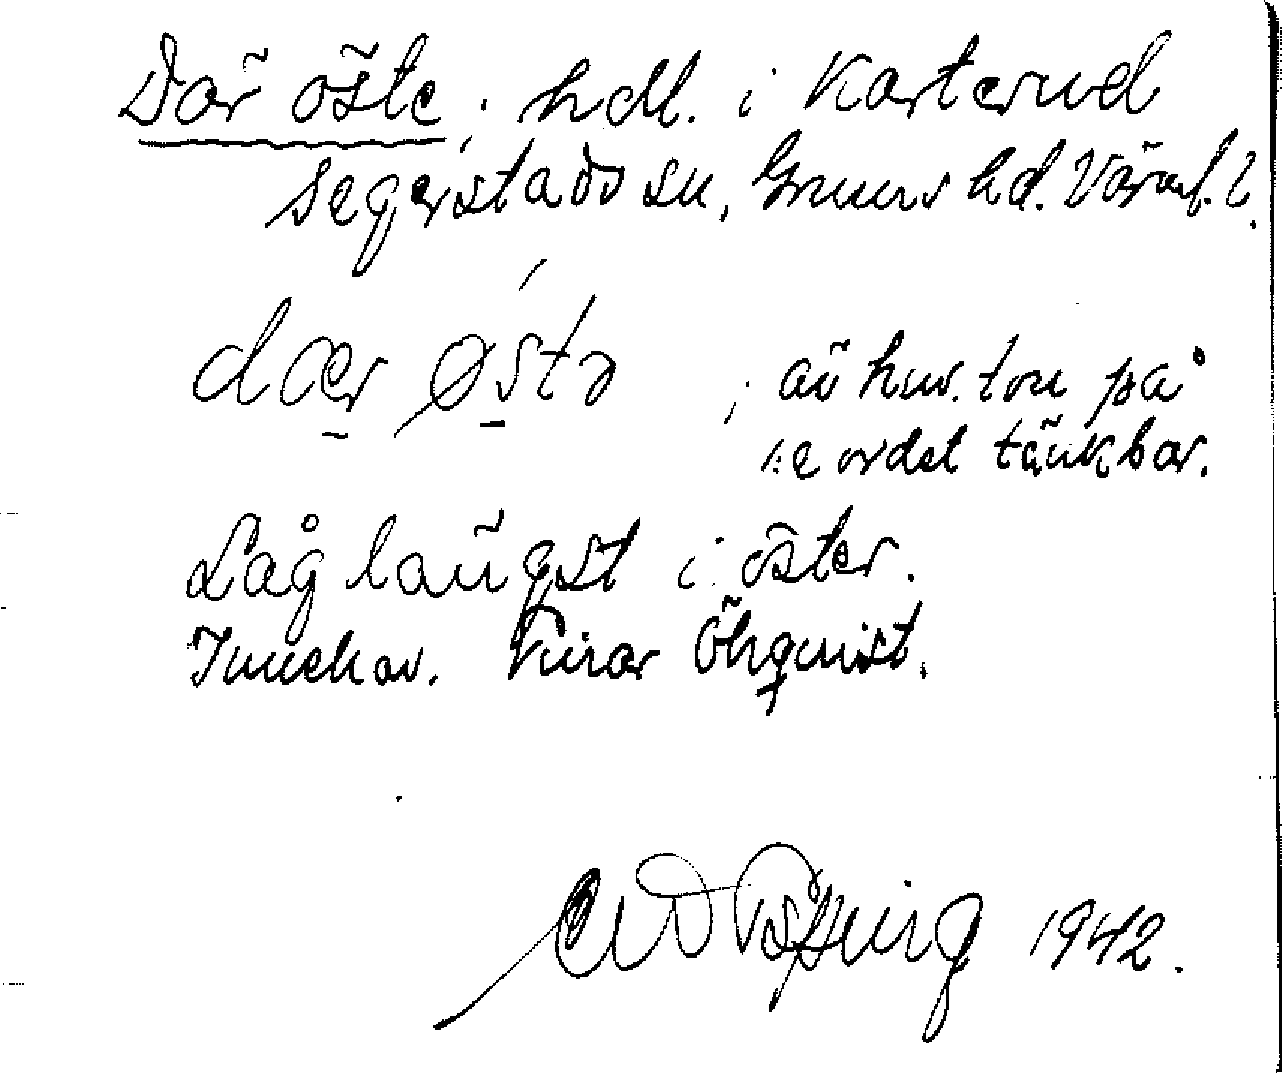 Där öste; hdl. i Karterud
Segerstads sn, Grums hd. Värml.
dær østə; äv huv. ton på
ordet tänkbar.
Låg längst i öster.
Innehav. Einar Öhquist.
1942.